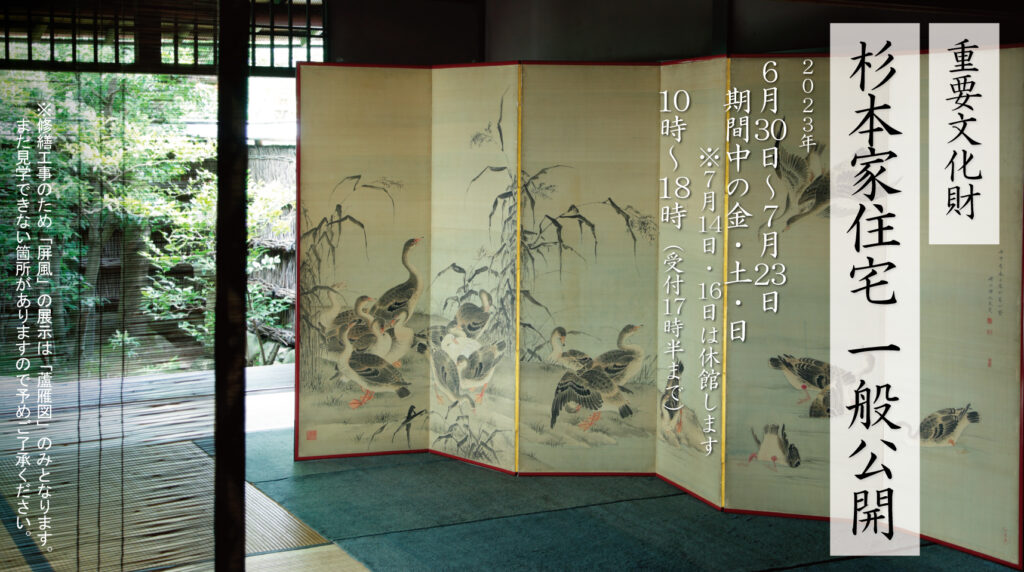 重要文化財
杉本家住宅 一般公開
2023年
6月30日～7月23日
期間中の金・土・日
※7月14日・16日は休館します
10時～18時（受付17時半まで）
※修繕工事のため「屏風」の展示は「蘆雁図」のみとなります。
まだ見学できない箇所がありますので予めご了承ください。